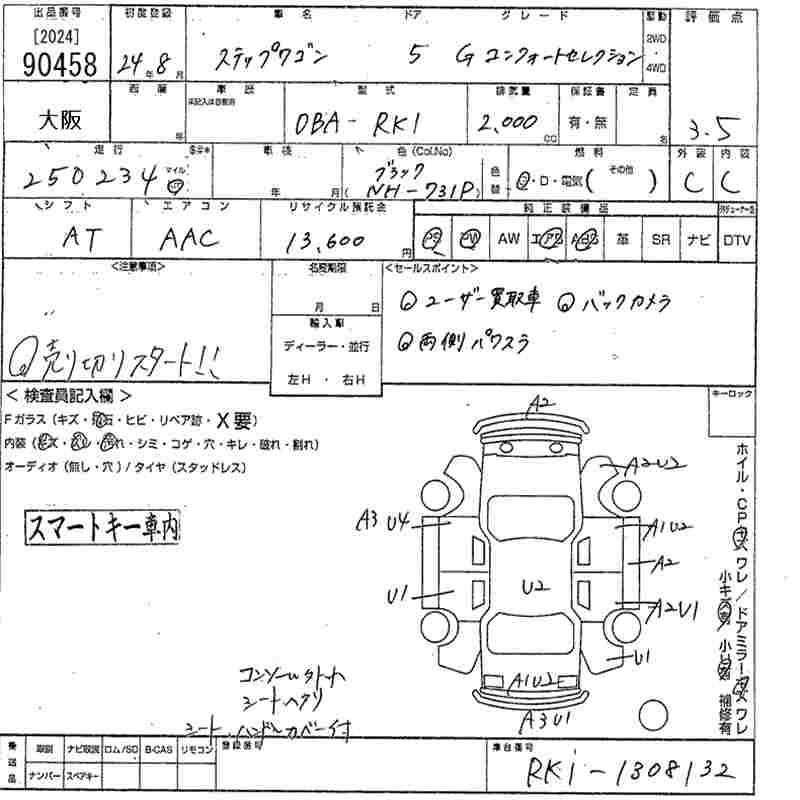 出品番号 初度登録 車名 ドア グレード 駆動 評価点
[2024]
90458 24年8月 ステップワゴン 5 G コンフォートセレクション 2WD・4WD
車歴 型式 排気量 保証書 定員
大阪 年 DBA-RK1 2,000cc 有・無 名 3.5
走行 車検 色(Col.No) 燃料 外装 内装
250234 マイル 年 月 ブラック (NH-731P) 色替 G・D・電気(その他) C C
シフト エアコン リサイクル預託金 純正装備品
AT AAC 13,600円 PS PW AW エアB ABS 革 SR ナビ DTV
<注意事項> 名変期限 <セールスポイント>
月 日 ◎ユーザー買取車 ◎バックカメラ
輸入車
ディーラー・並行 ◎両側パワスラ
◎売り切りスタート!!
左H・右H
<検査員記入欄> キーロック
Fガラス(キズ・飛石・ヒビ・リペア跡・X要)
内装(キズ・スレ・汚れ・シミ・コゲ・穴・キレ・破れ・割れ)
オーディオ(無し・穴)/タイヤ(スタッドレス)
スマートキー車内
A2
A2U2
A3 U4
A1U2
A2
U1
U2
A2U1
U1
A1U2
A3U1
ホイル・CPキズワレ/ドアミラーキズワレ
補修有
シートヘタリ
シート、ハンドルカバー付
発送品 取説 ナビ取説 ロム/SD B-CAS リモコン 登録番号 車台番号
ナンバー スペアキー RK1-1308132